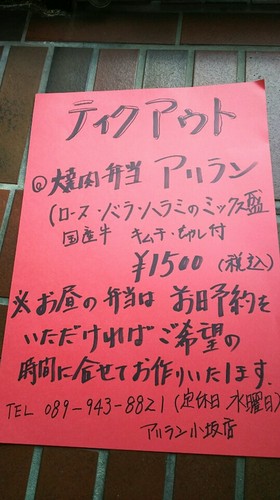 テイクアウト
◎焼肉弁当 アリラン
(ロース・バラ・ハラミのミックス盛
国産牛 キムチ・もやし付
¥1500(税込)
※お昼の弁当は お日予約を
いただければご希望の
時間に合せてお作りいたします.
TEL 089-943-8821(定休日 水曜日)
アリラン小坂店